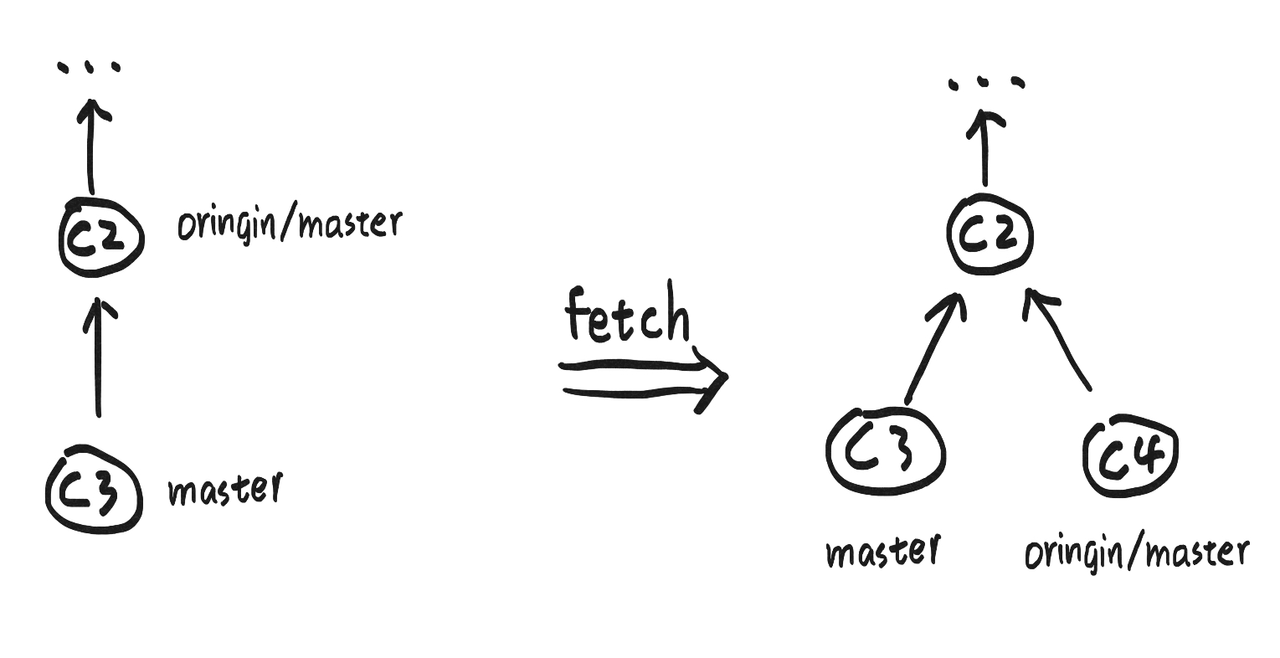 ...
C2 oringin/master
C3 master
fetch
...
C2
C3 C4
master oringin/master